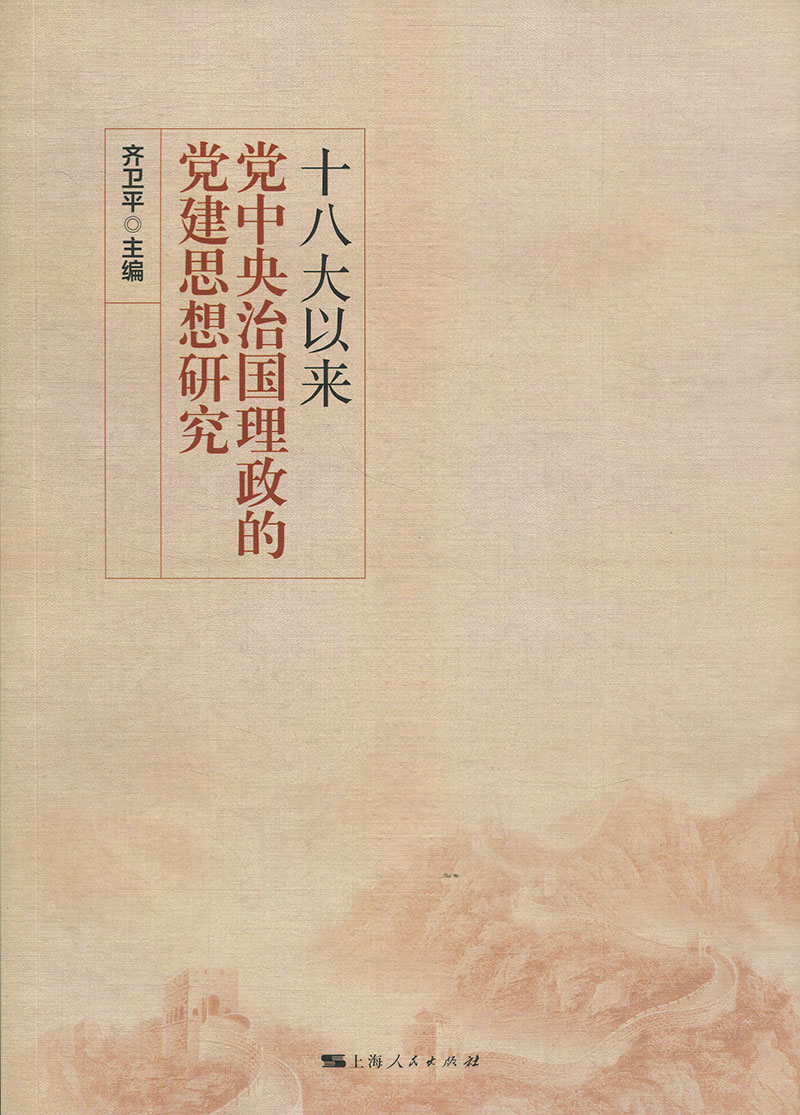 十八大以来
党中央治国理政的
党建思想研究
齐卫平◎主编
上海人民出版社